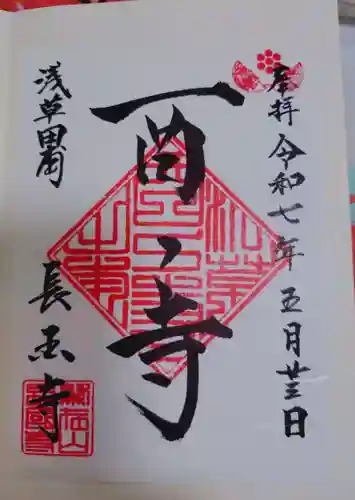 奉拝 令和七年 五月廿三日
酉之寺
浅草田圃
長国寺